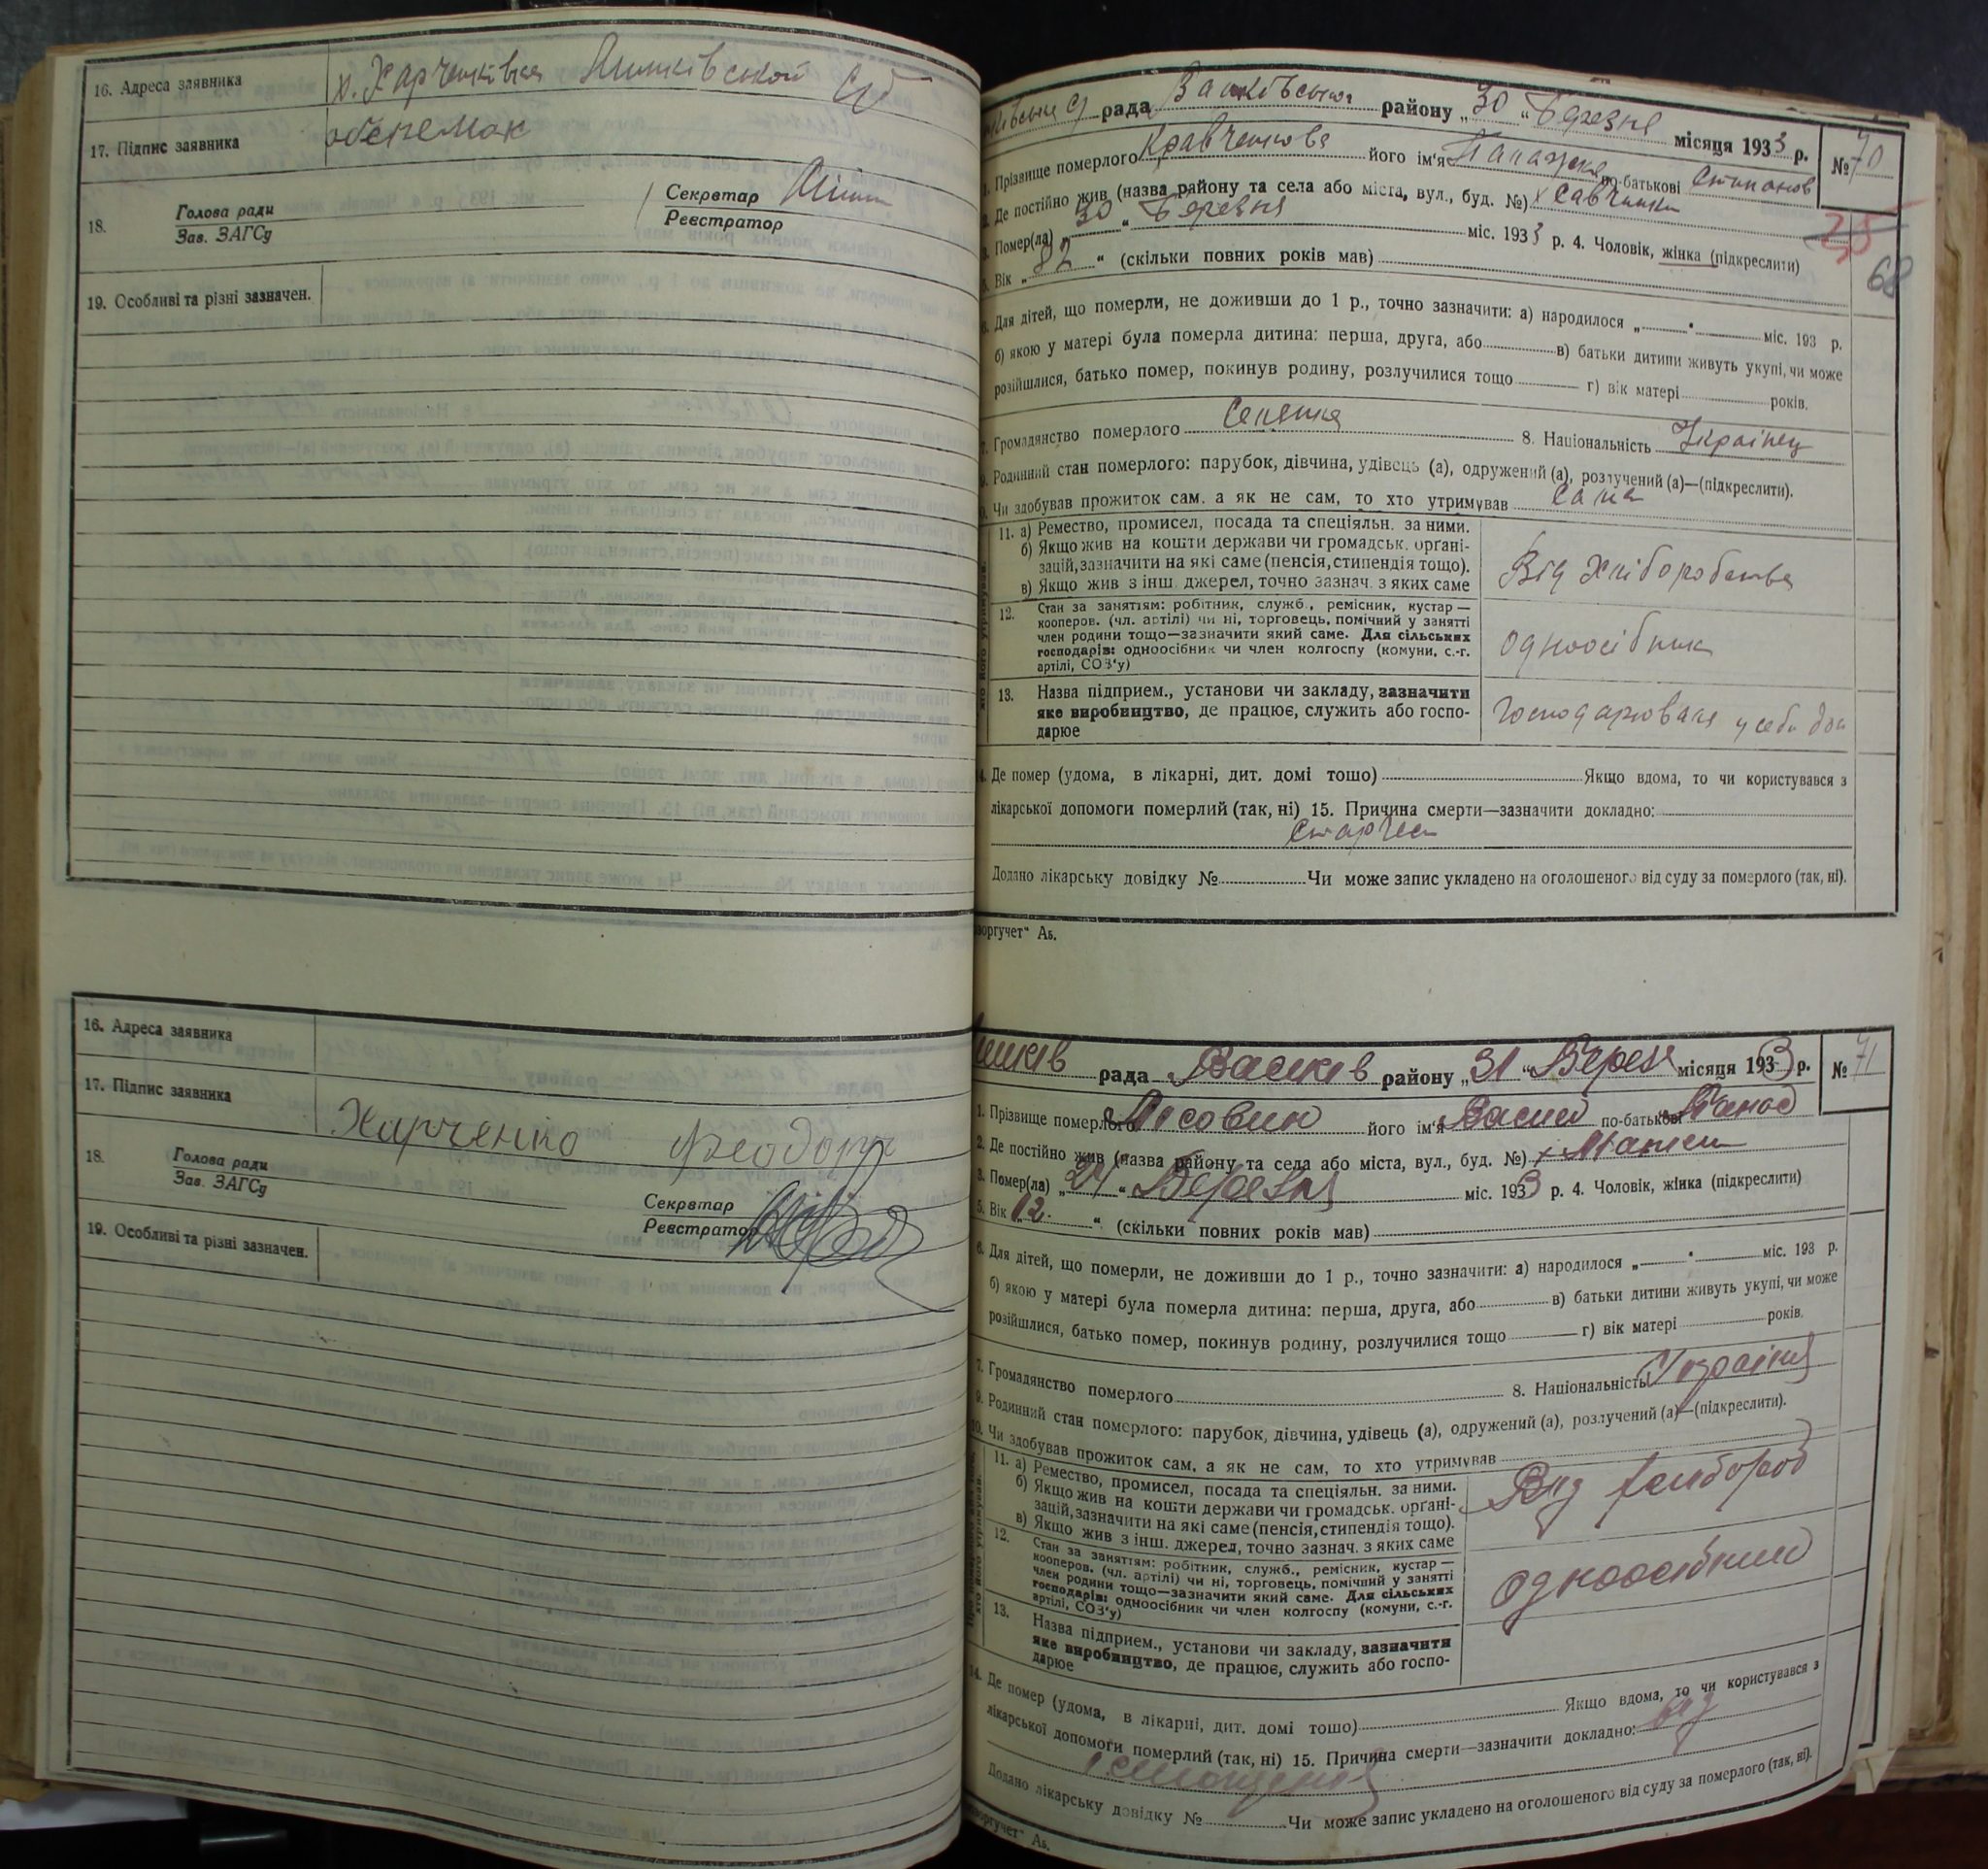 16. Адреса заявника х. Харченківка Яшиківської с/р
17. Підпис заявника
18. Голова ради
Зав. ЗАГСу
Секретар
Реєстратор
19. Особливі та різні зазначен.
16. Адреса заявника
17. Підпис заявника Харченко Феодора
18. Голова ради
Зав. ЗАГСу
Секретар
Реєстратор
19. Особливі та різні зазначен.
рада району „30“ Березня місяця 1933 р. № 70
1. Прізвище померлого Кравченкова його ім'я по-батькові Степанов
2. Де постійно жив (назва району та села або міста, вул., буд. №) х Савчинки
25
3. Помер(ла) „30“ Березня міс. 1933 р. 4. Чоловік, жінка (підкреслити)
68
5. Вік „82“ (скільки повних років мав)
6. Для дітей, що померли, не доживши до 1 р., точно зазначити: а) народилося „ “ міс. 193 р.
б) якою у матері була померла дитина: перша, друга, або в) батьки дитини живуть укупі, чи може
розійшлися, батько помер, покинув родину, розлучилися тощо г) вік матері років.
7. Громадянство померлого Селянка 8. Національність Українец
9. Родинний стан померлого: парубок, дівчина, удівець (а), одружений (а), розлучений (а)—(підкреслити).
10. Чи здобував прожиток сам, а як не сам, то хто утримував сама
11. а) Ремество, промисел, посада та спеціяльн. за ними.
б) Якщо жив на кошти держави чи громадськ. орґані-
зацій, зазначити на які саме (пенсія, стипендія тощо).
в) Якщо жив з інш. джерел, точно зазнач. з яких саме
Від Хліборобства
12. Стан за заняттям: робітник, служб., ремісник, кустар —
кооперов. (чл. артілі) чи ні, торговець, помічний у занятті
член родини тощо—зазначити який саме. Для сільських
господарів: одноосібник чи член колгоспу (комуни, с.-г.
артілі, СОЗ'у)
одноосібник
13. Назва підприєм., установи чи закладу, зазначити
яке виробництво, де працює, служить або госпо-
дарює
Господарювала у себе
14. Де помер (удома, в лікарні, дит. домі тошо) Якщо вдома, то чи користувався з
лікарської допомоги померлий (так, ні) 15. Причина смерти—зазначити докладно:
Додано лікарську довідку № Чи може запис укладено на оголошеного від суду за померлого (так, ні).
оргучет“ Аб.
рада Вашків району „31“ Берез місяця 1933 р. № 71
1. Прізвище померлого Лісовик його ім'я Васил по-батькові Панас
2. Де постійно жив (назва району та села або міста, вул., буд. №)
3. Помер(ла) „24“ Березня міс. 1933 р. 4. Чоловік, жінка (підкреслити)
5. Вік „12“ (скільки повних років мав)
6. Для дітей, що померли, не доживши до 1 р., точно зазначити: а) народилося „ “ міс. 193 р.
б) якою у матері була померла дитина: перша, друга, або в) батьки дитини живуть укупі, чи може
розійшлися, батько помер, покинув родину, розлучилися тощо г) вік матері років.
7. Громадянство померлого 8. Національність
9. Родинний стан померлого: парубок, дівчина, удівець (а), одружений (а), розлучений (а)—(підкреслити).
10. Чи здобував прожиток сам, а як не сам, то хто утримував
11. а) Ремество, промисел, посада та спеціяльн. за ними.
б) Якщо жив на кошти держави чи громадськ. орґані-
зацій, зазначити на які саме (пенсія, стипендія тощо).
в) Якщо жив з інш. джерел, точно зазнач. з яких саме
Від
12. Стан за заняттям: робітник, служб., ремісник, кустар —
кооперов. (чл. артілі) чи ні, торговець, помічний у занятті
член родини тощо—зазначити який саме. Для сільських
господарів: одноосібник чи член колгоспу (комуни, с.-г.
артілі, СОЗ'у)
одноосібник
13. Назва підприєм., установи чи закладу, зазначити
яке виробництво, де працює, служить або госпо-
дарює
14. Де помер (удома, в лікарні, дит. домі тошо) Якщо вдома, то чи користувався з
лікарської допомоги померлий (так, ні) 15. Причина смерти—зазначити докладно: від
Додано лікарську довідку № Чи може запис укладено на оголошеного від суду за померлого (так, ні).
оргучет“ Аб.